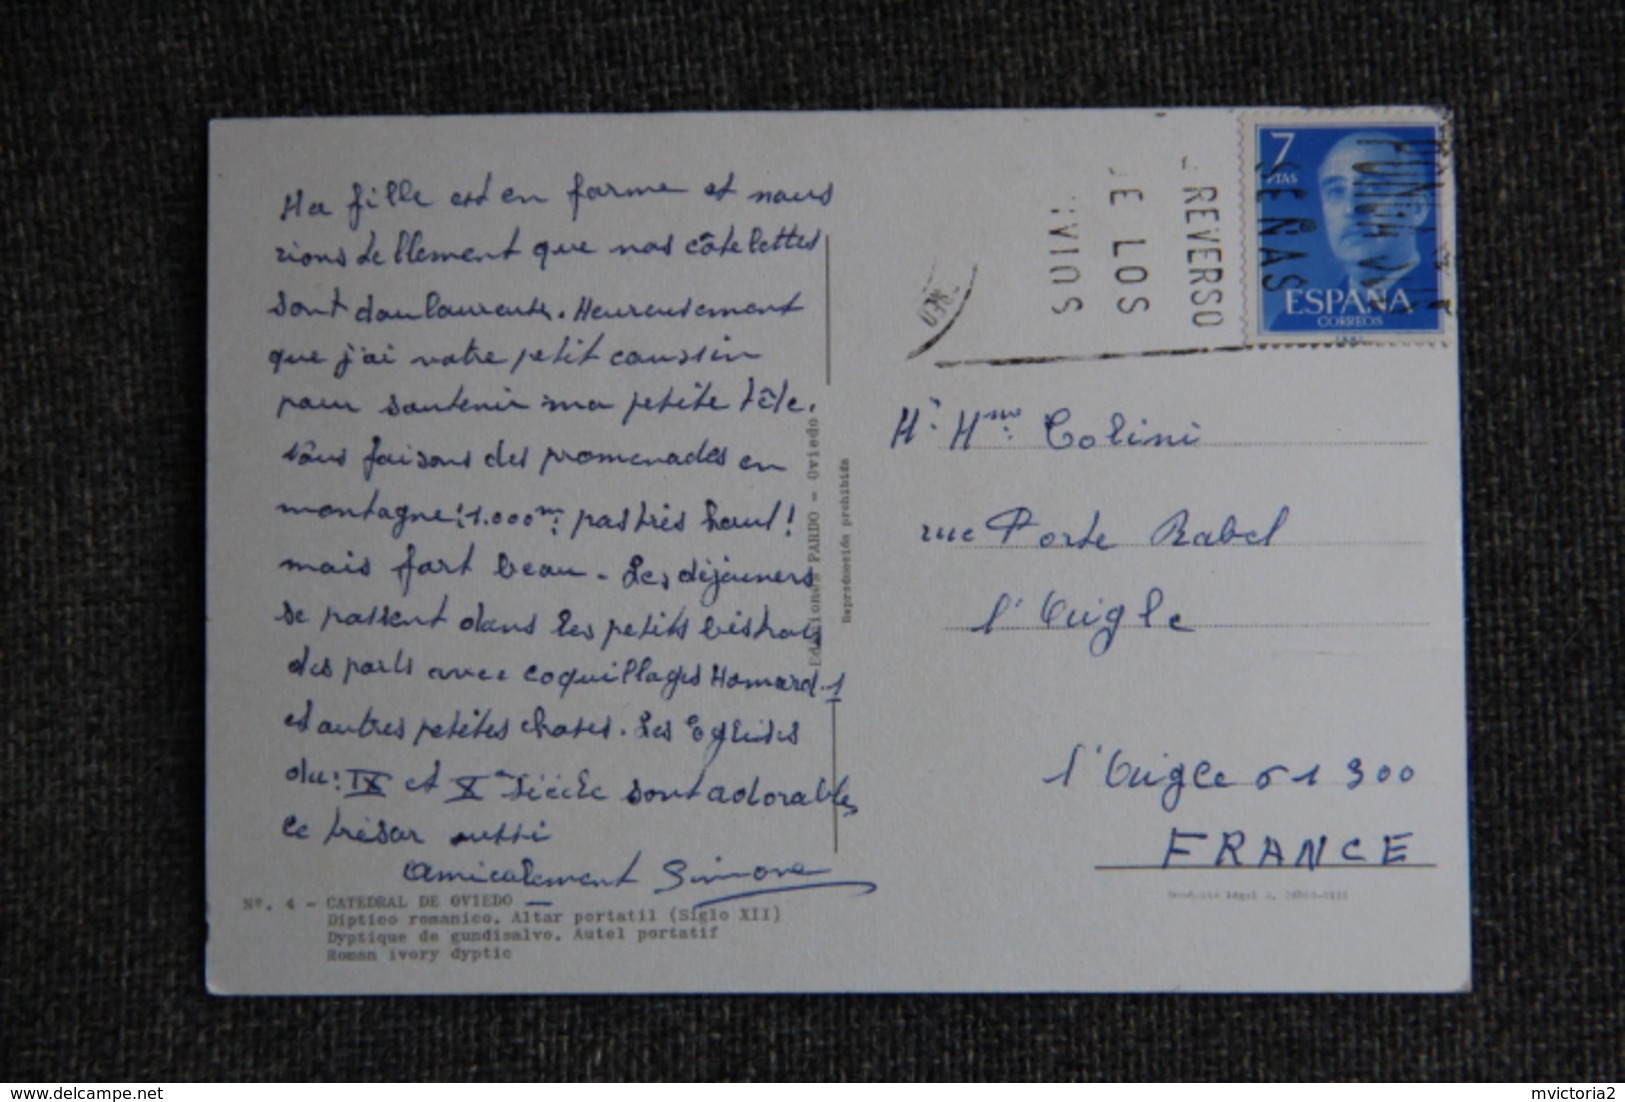 Ma fille est en forme et nous
rions tellement que nos côtelettes
sont douloureuses. Heureusement
que j'ai votre petit coussin
pour soutenir ma petite tête.
Nous faisons des promenades en
montagne: 1.000m: pas très haut!
mais fort beau. Les déjeuners
se passent dans les petits bistrots
des ports avec coquillages Homard.1
et autres petites choses. Les Eglises
du: IX et Xe Siècle sont adorables
le trésor aussi
Amicalement Simone
Nº. 4 - CATEDRAL DE OVIEDO
Díptico romanico. Altar portatil (Siglo XII)
Dyptique de gundisalvo. Autel portatif
Roman ivory dyptic
Ediciones PARDO - Oviedo
Reproducción prohibida
REVERSO
E LOS
VIOS
SEÑAS
7
PTAS
ESPAÑA
CORREOS
M. Mme: Colini
rue Porte Rabel
l'Aigle
l'Aigle 61300
FRANCE
delcampe.net
mvictoria2